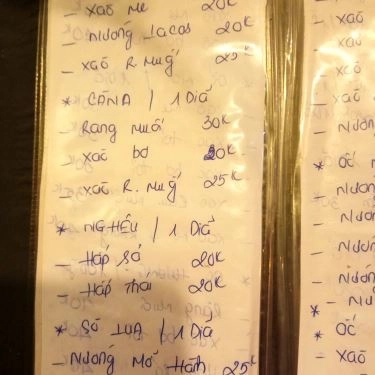 - xaō me 20K
- nướng Tacos 20K
- xaō R. muố 25K
* CANA / 1 Diã
Rang muối 30K
- xaō bơ 20K
- xaō R. muố 25K
* NGHÊU / 1 Diã
- Hấp sả 20K
- Hấp Thái 20K
* SÒ LỤA / 1 Diã
- Nướng Mỡ Hành 25K
xaō
xaō
xaō
- xaō
- Nướn
* ỐC
Nướn
- Nướn
- Nướn
- Nướn
- Nướ
* ỐC
- xaō